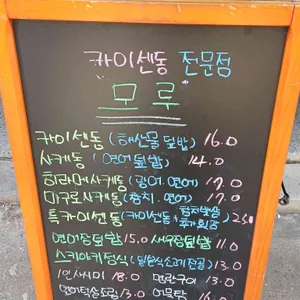 카이센동 전문점
모루
카이센동 (해산물 덮밥) 16.0
사케동 (연어덮밥) 14.0
히라메사케동 (광어, 연어) 17.0
마구로사케동 (참치, 연어) 17.0
특카이센동 (카이센동+ 참치뱃살 23.0
연어장덮밥 15.0 새우장덮밥 11.0
스키야키정식 (일본식소고기전골) 13.0
1인사시미 18.0 명란구이 13.0
13.0 어묵탕